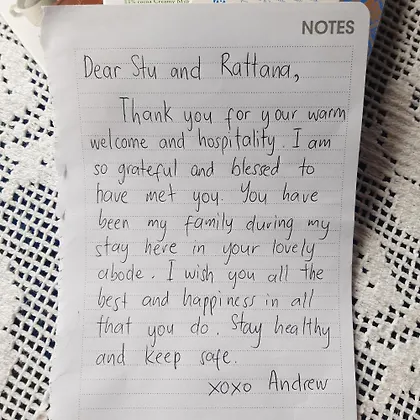 NOTES
Dear Stu and Rattana,
Thank you for your warm
welcome and hospitality. I am
so grateful and blessed to
have met you. You have
been my family during my
stay here in your lovely
abode. I wish you all the
best and happiness in all
that you do. Stay healthy
and keep safe.
xoxo Andrew